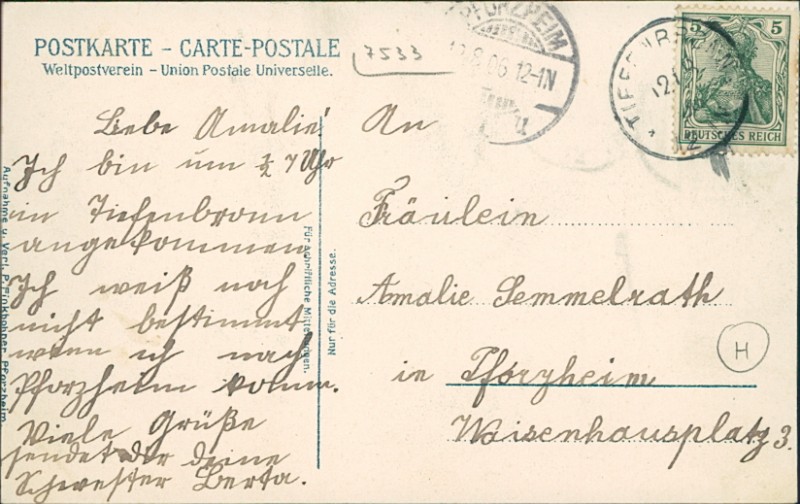 POSTKARTE – CARTE-POSTALE
Weltpostverein – Union Postale Universelle.
7533
PFORZHEIM
12.8.06.12-1N
TIEFENBRONN
DEUTSCHES REICH
5 5
Liebe Amalie!
Ich bin um ½ 7 Uhr
in Tiefenbronn
angekommen
Ich weiß noch
nicht bestimmt
wenn ich nach
Pforzheim komm.
Viele Grüße
sendet dir deine
Schwester Berta.
An
Fräulein
Amalie Semmelrath
in Pforzheim
Waisenhausplatz 3.
H
Für schriftliche Mitteilungen.
Nur für die Adresse.
Aufnahme u. Verl. P. Finkbohner, Pforzheim.